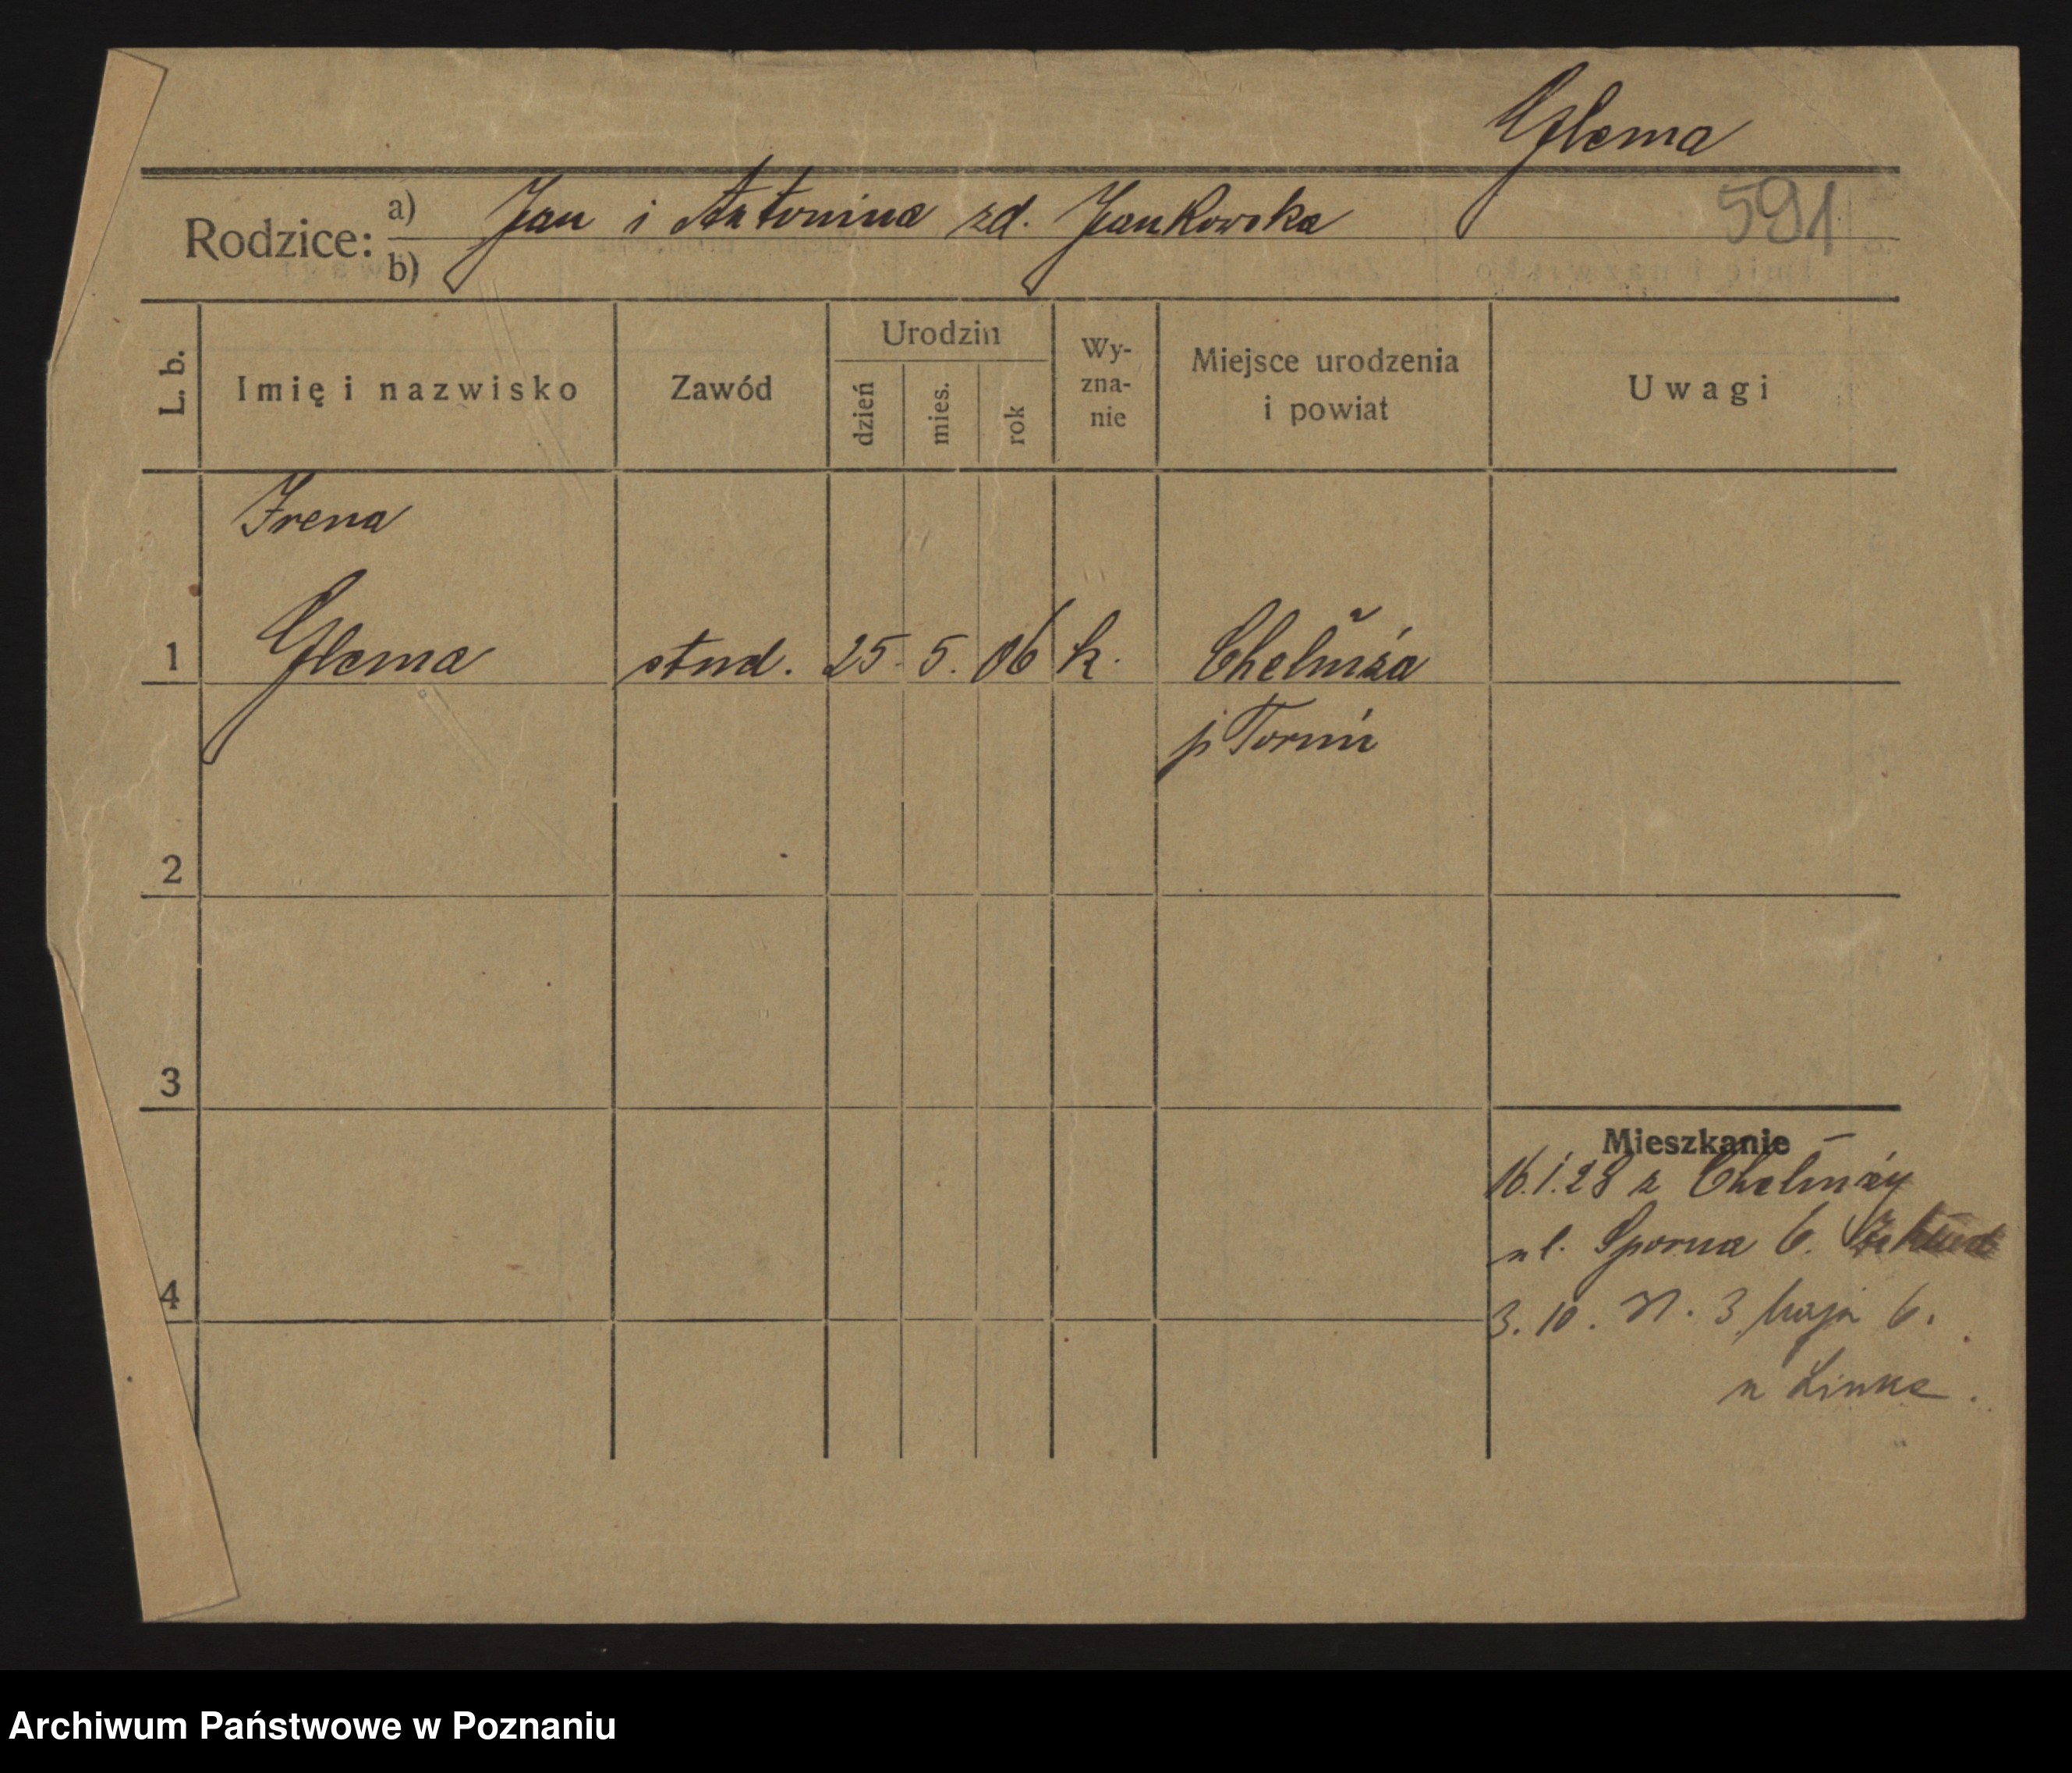 Glema
591
Rodzice: a) Jan i Antonina zd. Jankowska
b)
L. b. Imię i nazwisko Zawód Urodzin dzień mies. rok Wy-zna-nie Miejsce urodzenia i powiat Uwagi
Irena
1 Glema stud. 25. 5. 06 k. Chelmža
p Toruń
2
3
Mieszkanie
16.1.28 z Chelmży
ul. Sporna 6.
4
3. 10. 3 maja 6.
u Linke.
Archiwum Państwowe w Poznaniu